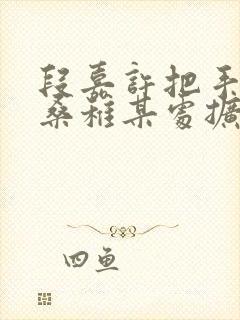 段嘉許把手
桑稚某處擴
四鱼